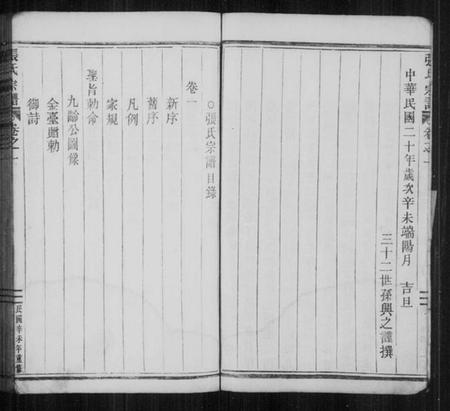 張氏宗譜 卷之一
中華民國二十年歲次辛未端陽月 吉旦
三十二世孫興之謹撰
○張氏宗譜目錄
卷一
新序
舊序
凡例
家規
聖旨勅命
九齡公圖像
金臺贈勅
御詩
張氏宗譜
卷之一
民國辛未年重修